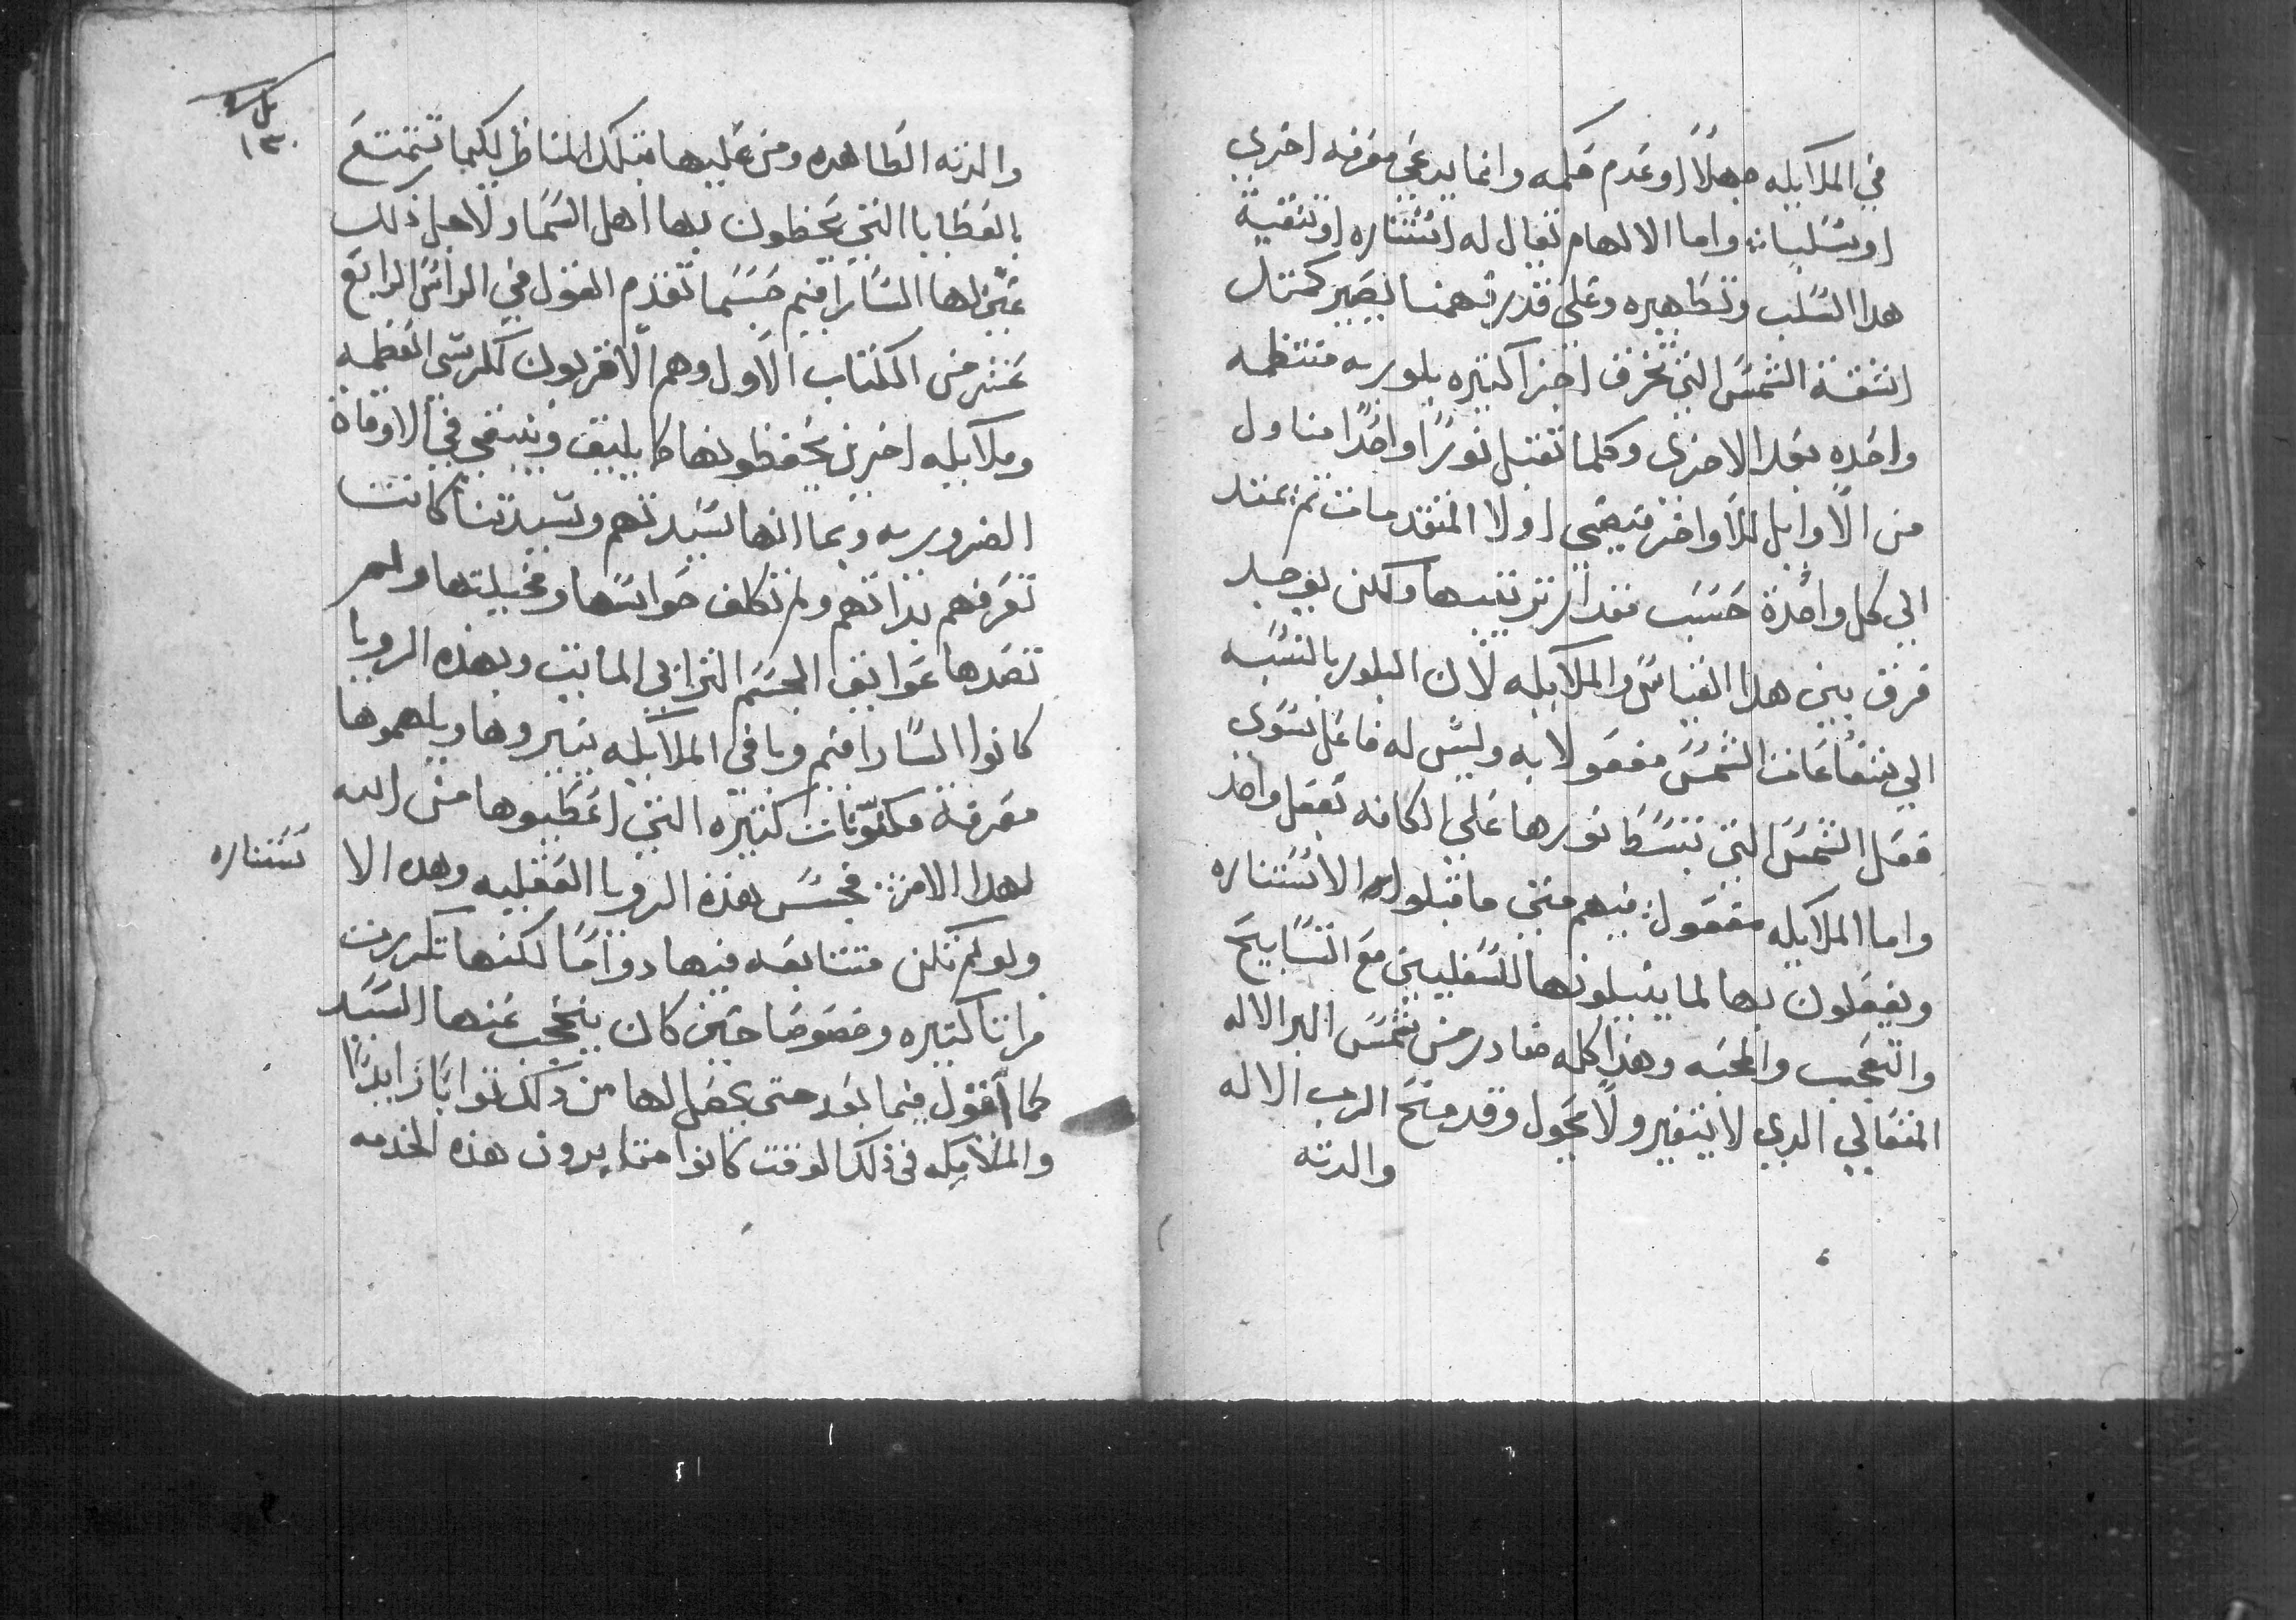 في الملايكه جهلاً او عدم حكمه وانما يدعى معرفه اخرى
او يسلبا: واما الالهام تقال له استناره او تنقية
هدا السلب وتطهيره وعلى قدر فهمنا يصير كمثل
اشعة الشمس التي تخرق اجزا كتيره بلوريه منتظمه
واحده بعد الاخرى وكلها تقبل نورًا واحدًا مناول
من الاوايل للاواخر فيضي اولا المتقدمات ثم يمتد
الي كل واحدة حسب مقدار ترتيبها ولكن يوجد
فرق بين هدا القياس والملايكه لان البلور بالنسبه
الي شعاعات الشمس مفعولا به وليس له فاعل سوى
فعل الشمس التي تبسط نورها على الكافه بفعل واحد
واما الملايكه مفعول فيهم متى ما قبلوا الاستناره
ويفعلون بها لما ينيلونها للسفليين مع التسابيح
والتعجب والمحبه وهذا كله صادر من شمس البر الاله
المتعالي الدي لا يتغير ولا يحول وقد منح الرب الاله
والدته
والدته الطاهره ومن عليها بتلك المناظر لكيما تتمتع
بالعطايا التي يحظون بها اهل السما ولاجل ذلك
عين لها السارافيم حسبما تقدم القول في الراس الرابع
عشر من الكتاب الاول وهم الاقربون لكرسي العظمه
وملايكه اخرين يحفظونها كما يليق وينبغي في الاوقاة
الضروريه وبما انها سيدتهم وسيدتنا كانت
تعرفهم بذاتهم ولم تكلف حواسها ومخيلتها ولم
تصدها عوايق الجسم الترابي المايت وبهذه الرويا
كانوا السارافيم وباقي الملايكه ينيروها ويلهموها
معرفة مكنونات كتيره التي اعطيوها من الله
لهدا الامر: فبحسب هذه الرويا العقليه وهده الا
ستناره
ولو لم تكن متتابعه فيها دوامًا لكنها تكررت
مرارًا كتيره وخصوصًا حين كان يحتجب عنها السيد
كما اقول فيما بعد حتى يحصل لها من ذلك ثوابًا زايدًا
والملايكه في ذلك الوقت كانوا متايدون هذه الخدمه
١٣٠